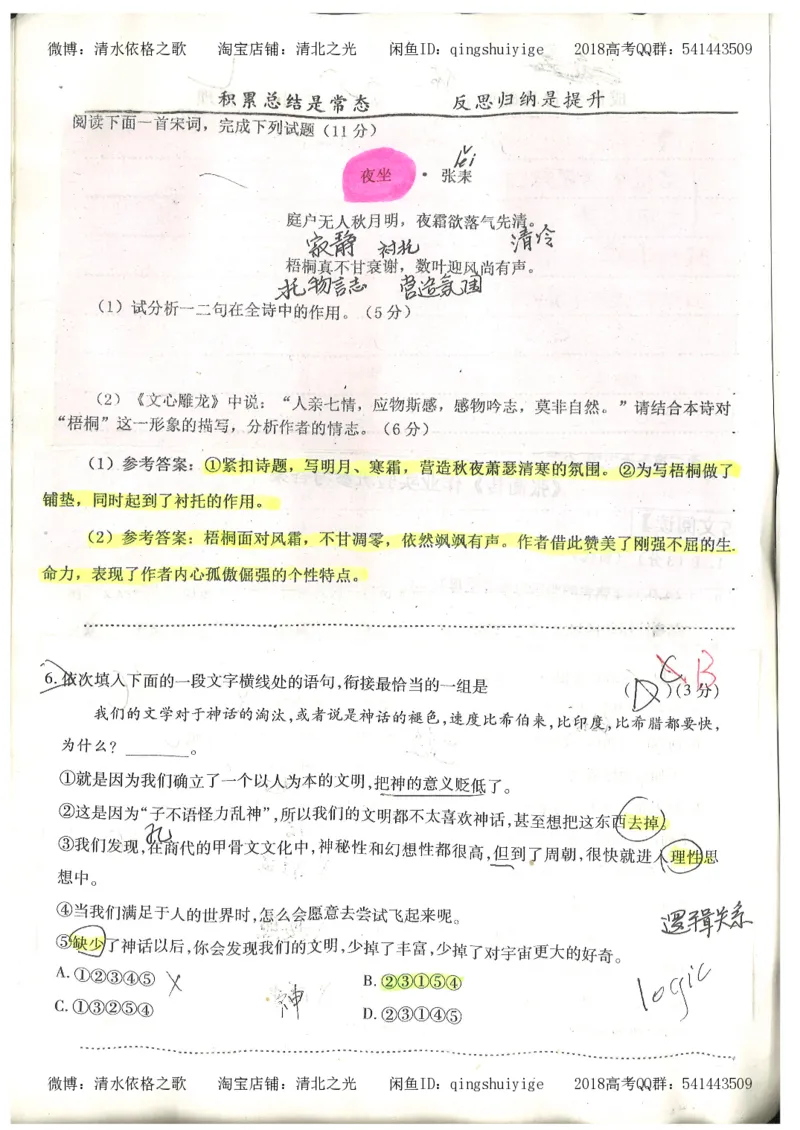 微博：清水依格之歌 淘宝店铺：清北之光 闲鱼ID：qingshuiyige 2018高考QQ群：541443509
积累总结是常态 反思归纳是提升
阅读下面一首宋词，完成下列试题（11分）
lěi
夜坐 · 张耒
庭户无人秋月明，夜霜欲落气先清。
寂静 衬托 清冷
梧桐真不甘衰谢，数叶迎风尚有声。
托物言志 营造氛围
（1）试分析一二句在全诗中的作用。（5分）
（2）《文心雕龙》中说：“人亲七情，应物斯感，感物吟志，莫非自然。”请结合本诗对
“梧桐”这一形象的描写，分析作者的情志。（6分）
（1）参考答案：①紧扣诗题，写明月、寒霜，营造秋夜萧瑟清寒的氛围。②为写梧桐做了
铺垫，同时起到了衬托的作用。
（2）参考答案：梧桐面对风霜，不甘凋零，依然飒飒有声。作者借此赞美了刚强不屈的生
命力，表现了作者内心孤傲倔强的个性特点。
C B
6.依次填入下面的一段文字横线处的语句,衔接最恰当的一组是 （D）(3分)
我们的文学对于神话的淘汰,或者说是神话的褪色,速度比希伯来,比印度,比希腊都要快,
为什么？________。
①就是因为我们确立了一个以人为本的文明,把神的意义贬低了。
②这是因为“子不语怪力乱神”,所以我们的文明都不太喜欢神话,甚至想把这东西去掉。
孔
③我们发现,在商代的甲骨文文化中,神秘性和幻想性都很高,但到了周朝,很快就进入理性思
想中。
④当我们满足于人的世界时,怎么会愿意去尝试飞起来呢。
逻辑关系
⑤缺少了神话以后,你会发现我们的文明,少掉了丰富,少掉了对宇宙更大的好奇。
A.①②③④⑤ B.②③①⑤④
logic
C.①③②⑤④ 神 D.②③①④⑤
微博：清水依格之歌 淘宝店铺：清北之光 闲鱼ID：qingshuiyige 2018高考QQ群：541443509